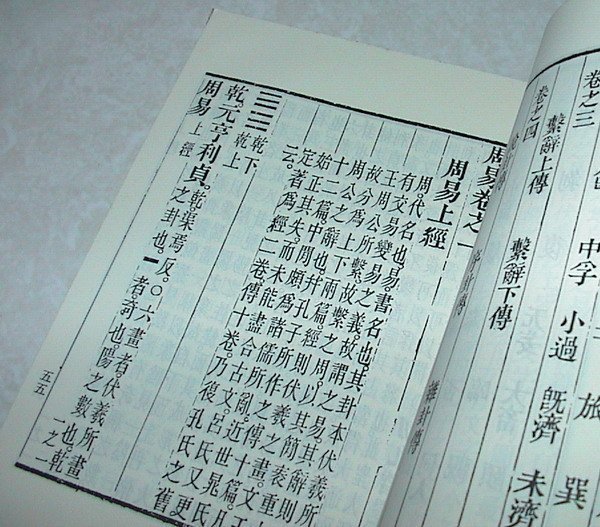 卷之三
中孚 小過 既濟 未濟
旅 巽
繫辭上傳
卷之四
繫辭下傳
周易卷之一
周易上經
周代名也。易書名也。其卦本伏羲所
有交易變易之義。故謂之易。其辭則
王周公所繫。故繫之周。以其簡袠重
故分爲上下兩篇。經則伏羲之畫。文
周公之辭也。并孔子所作之傳十篇。凡
十二篇。中間頗爲諸儒所亂。近世晁氏
始正其失。而未能盡合古文。呂氏又更
定著爲經二卷。傳十卷。乃復孔氏之舊
云。
乾下
乾上
乾元亨利貞。乾渠焉反。○六畫者伏羲所畫
之卦也。一者奇也。陽之數也。乾
周易 上經
五五
一之一